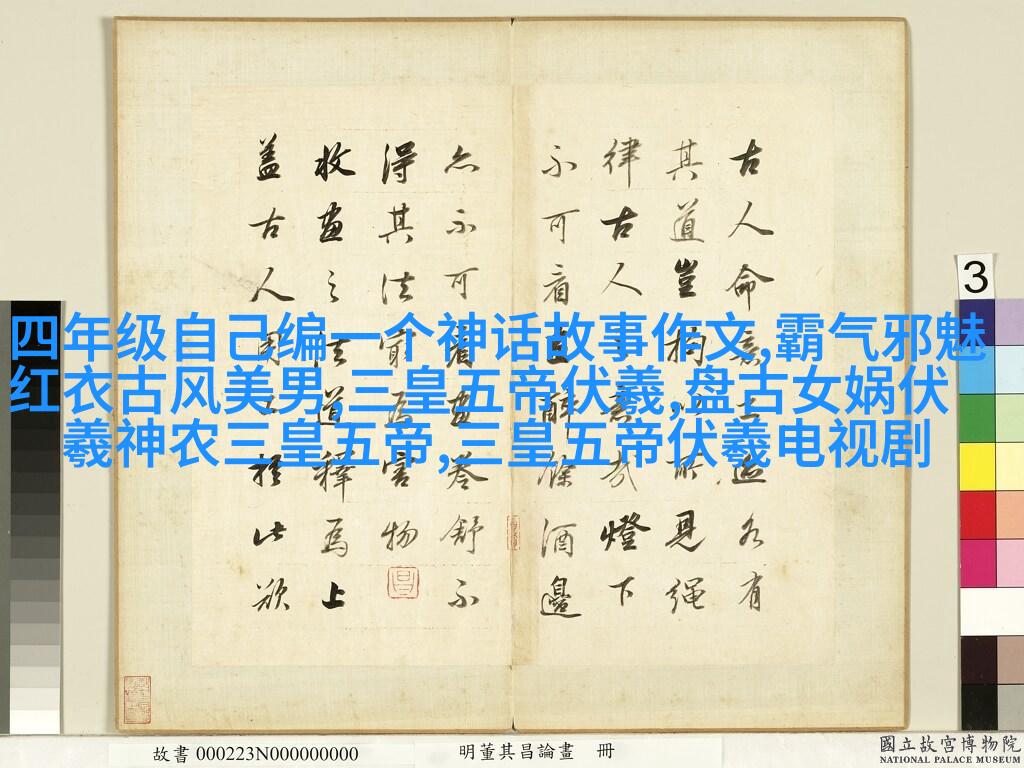 四年级自己编一个神话故事作文,霸气邪魅
红衣古风美男,三皇五帝伏羲,盘古女娲伏
羲神农三皇五帝,三皇五帝伏羲电视剧
古人命意立迹各有
其道豈拘以所見繩
律古人意哉燈下
不可看畫醉餘酒邊
亦不可看畫卷舒不
得其法為害物
收畫之法道釋為上
蓋古人用工於此欲
3
故書 000223N000000000
明董其昌論畫 冊
國立故宮博物院
NATIONAL PALACE MUSEUM